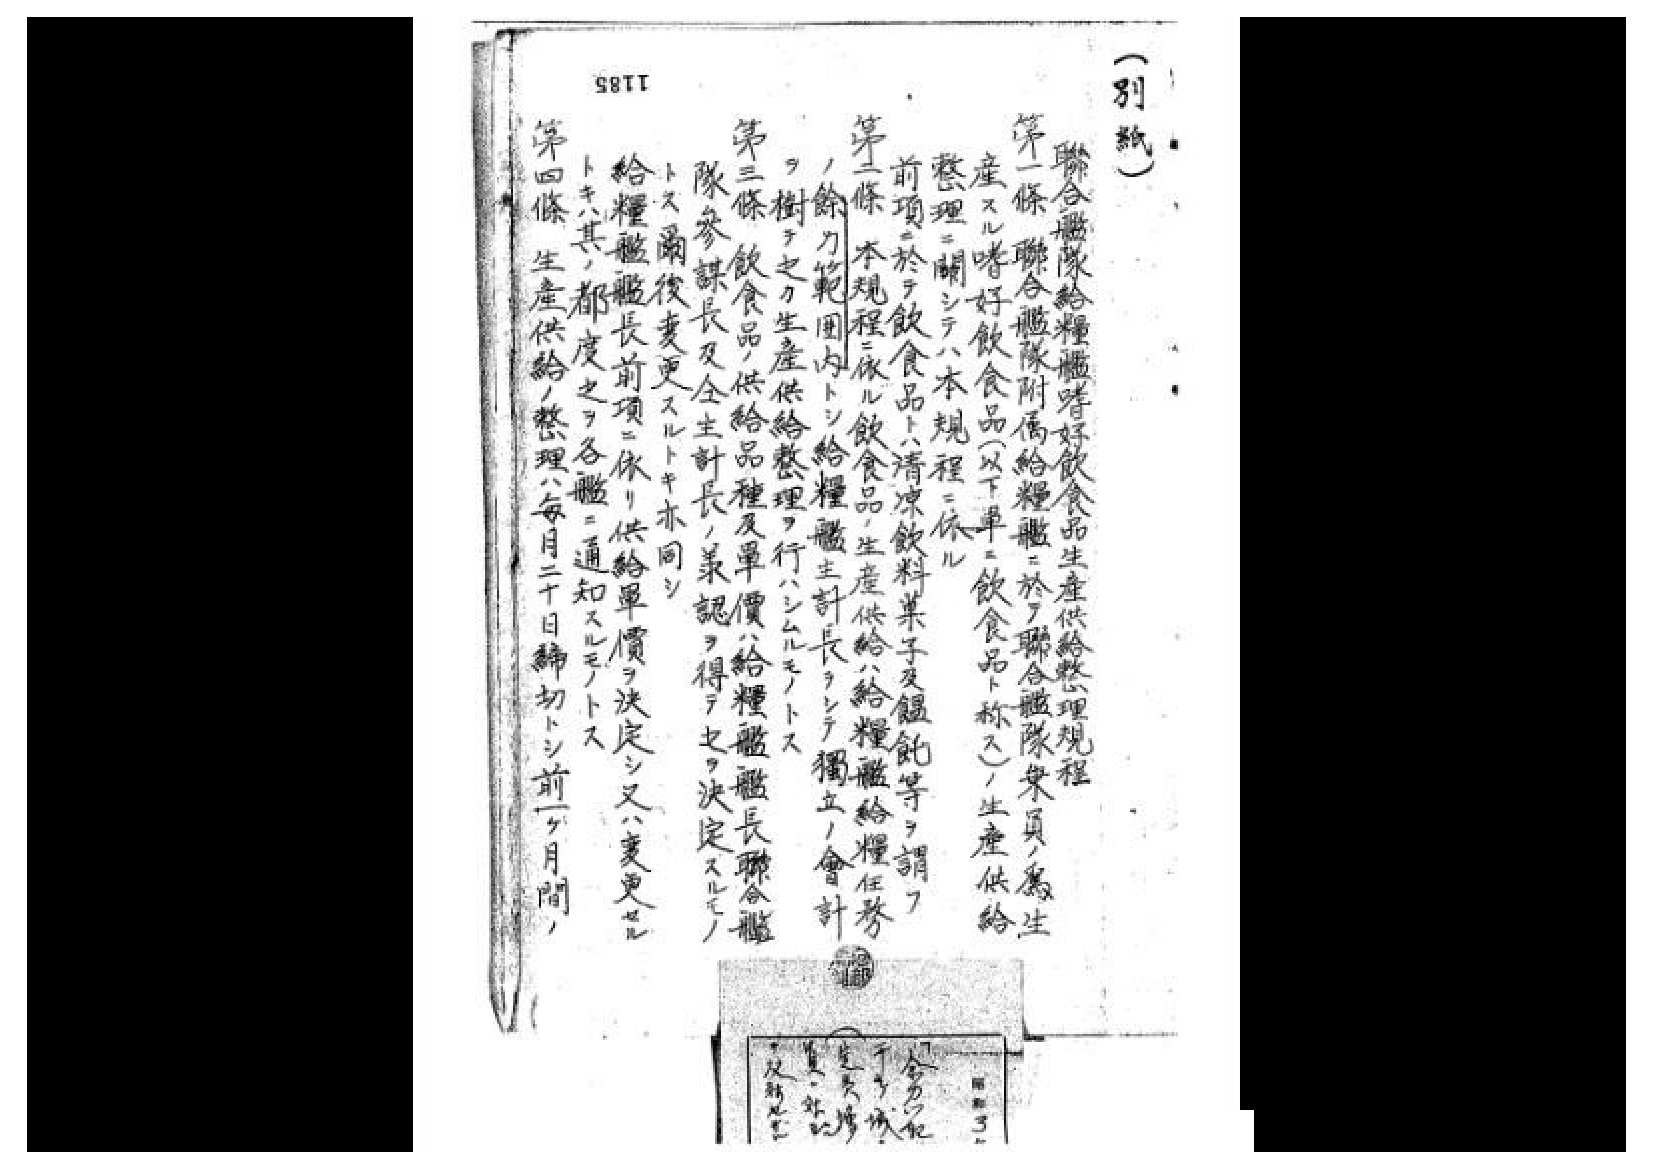 (別紙)
聯合艦隊給糧艦嗜好飲食品生産供給整理規程
第一條 聯合艦隊附属給糧艦ニ於テ聯合艦隊乗員ノ為生
産スル嗜好飲食品(以下単ニ飲食品ト称ス)ノ生産供給
整理ニ關シテハ本規程ニ依ル
前項ニ於テ飲食品トハ清凉飲料菓子及饂飩等ヲ謂フ
第二條 本規程ニ依ル飲食品ノ生産供給ハ給糧艦給糧任務
ノ餘力範囲内トシ給糧艦主計長ヲシテ獨立ノ會計
ヲ樹テ之カ生産供給整理ヲ行ハシムルモノトス
第三條 飲食品ノ供給品種及單價ハ給糧艦艦長聯合艦
隊参謀長及仝主計長ノ承認ヲ得テ之ヲ決定スルモノ
トス爾後変更スルトキ亦同シ
給糧艦艦長前項ニ依リ供給單價ヲ決定シ又ハ変更セル
トキハ其ノ都度之ヲ各艦ニ通知スルモノトス
第四條 生産供給ノ整理ハ毎月二十日締切トシ前一ケ月間ノ
1185
昭和